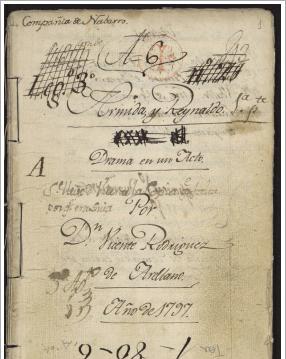 Compañia de Nabarro.
A 6
Leg.º 3º
Armida, y Reynaldo. 1ª pte
Drama en un Acto.
A
Por
Dn Vicente Rodriguez
de Arellano.
Año de 1797.
1-80-6